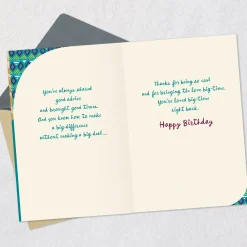 You've always shared
good advice
and brought good times.
And you know how to make
a big difference
without making a big deal...
Thanks for being so cool
and for bringing the love big-time.
You're loved big-time
right back.
Happy Birthday